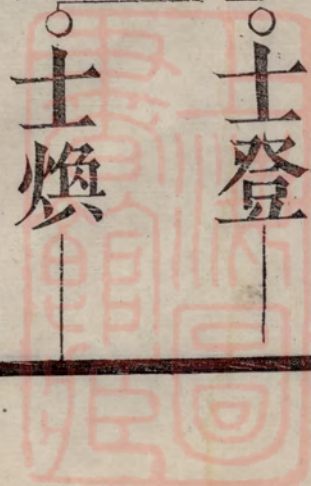 士登
士煥